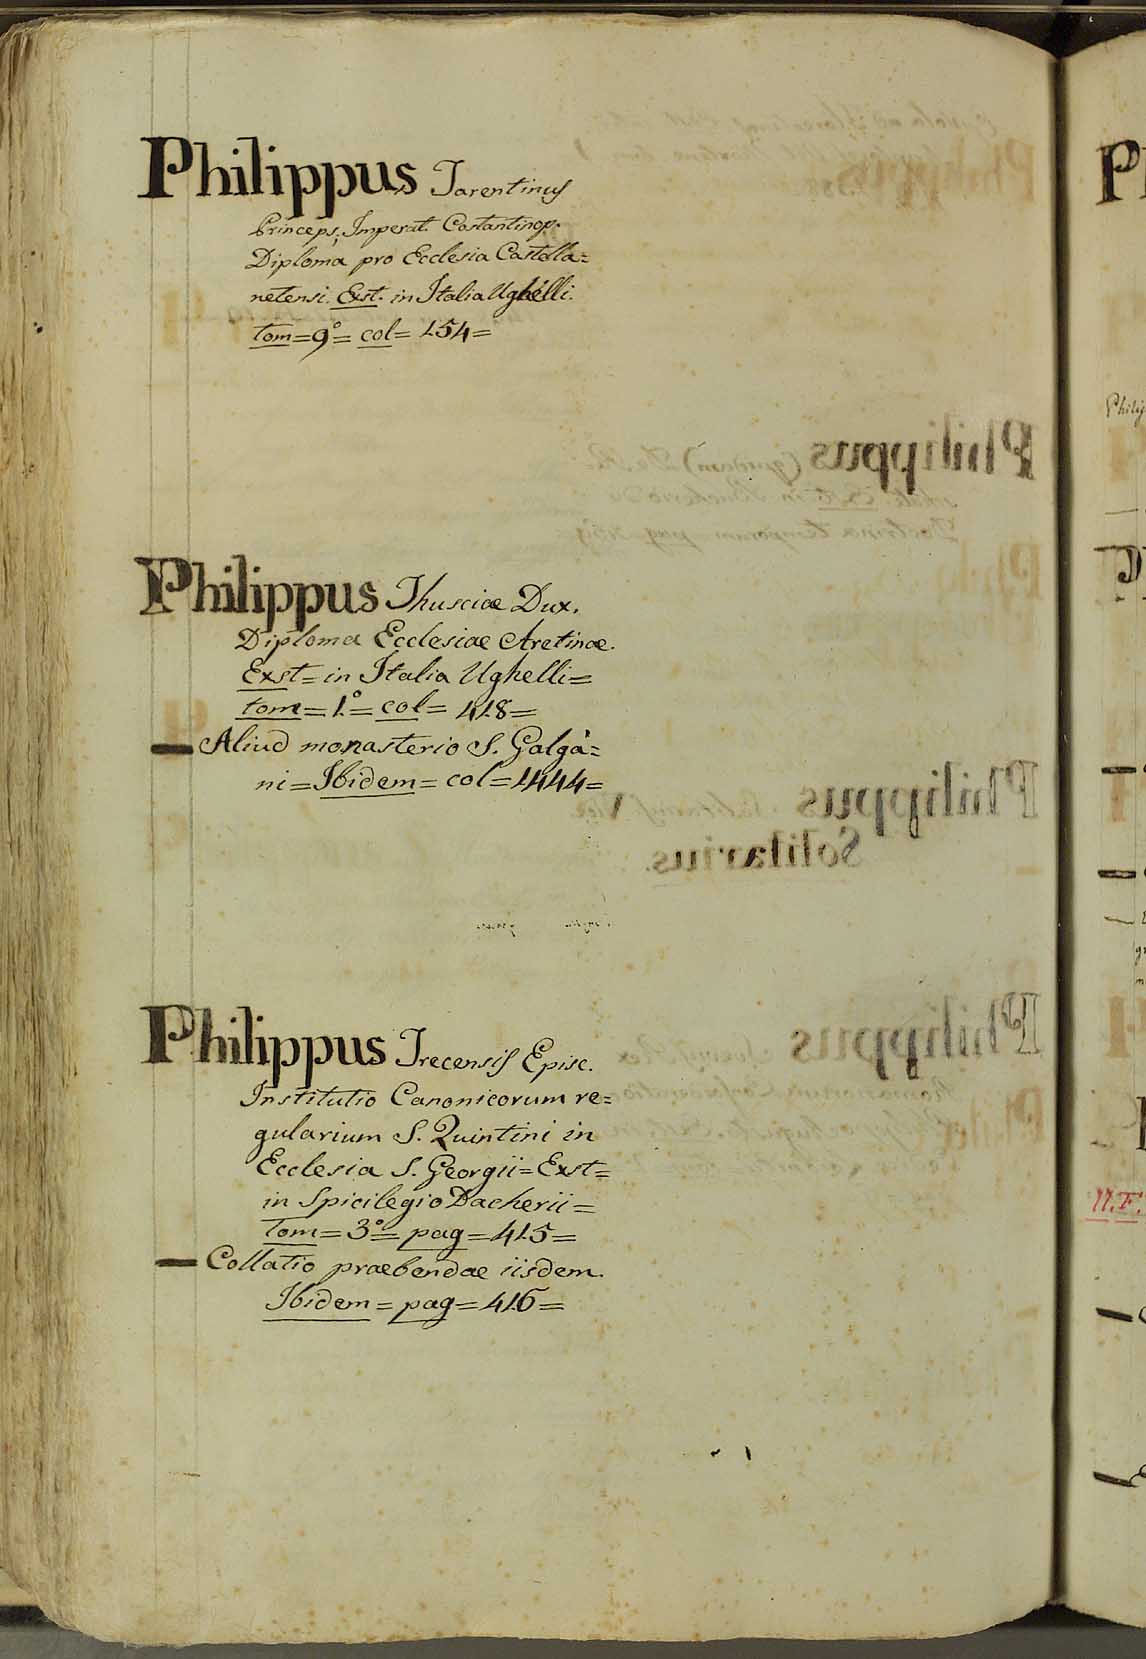 Philippus Tarentinus
Princeps, Imperat. Costantinop.
Diploma pro Ecclesia Castella=
netensi. Exst. in Italia Ughelli.
tom=9°= col= 154=
Philippus Thusciae Dux.
Diploma Ecclesiae Aretinae.
Exst= in Italia Ughelli=
tom= 1.°= col= 418=
— Aliud monasterio S. Galga=
ni= Ibidem= col= 444=
Philippus Trecensis Episc.
Institutio Canonicorum re=
gularium S. Quintini in
Ecclesia S. Georgii= Exst=
in Spicilegio Dacherii=
Tom= 3°= pag= 415=
— Collatio praebendae iisdem.
Ibidem= pag= 416=